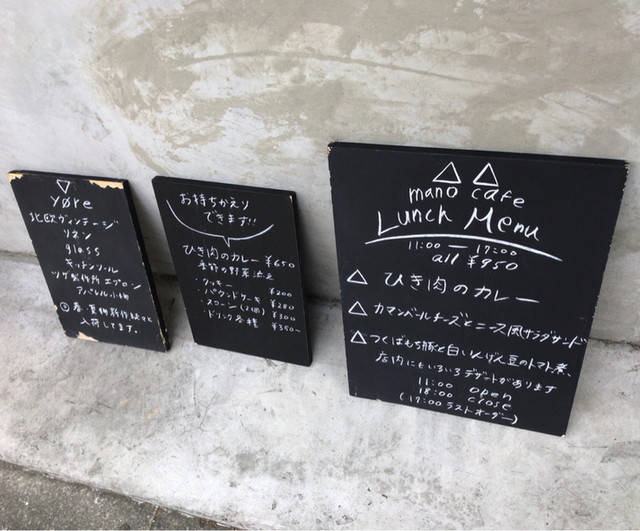 yøre
北欧ヴィンテージ
リネン
glass
キッチンツール
ツゲ製作所 エプロン
アパレル小物
春・夏物新作続々と
入荷します。
お持ちかえり
できます!!
ひき肉のカレー ¥650
季節の野菜添え
・クッキー ¥200
・パウンドケーキ ¥280
・スコーン(2個) ¥300
・ドリンク各種 ¥350~
mano cafe
Lunch Menu
11:00 — 17:00
all ¥950
△ ひき肉のカレー
△ カマンベールチーズとニース風サラダサンド
△ つくばもち豚と白いんげん豆のトマト煮
店内にもいろいろデザートがあります
11:00 open
18:00 crose
(17:00 ラストオーダー)